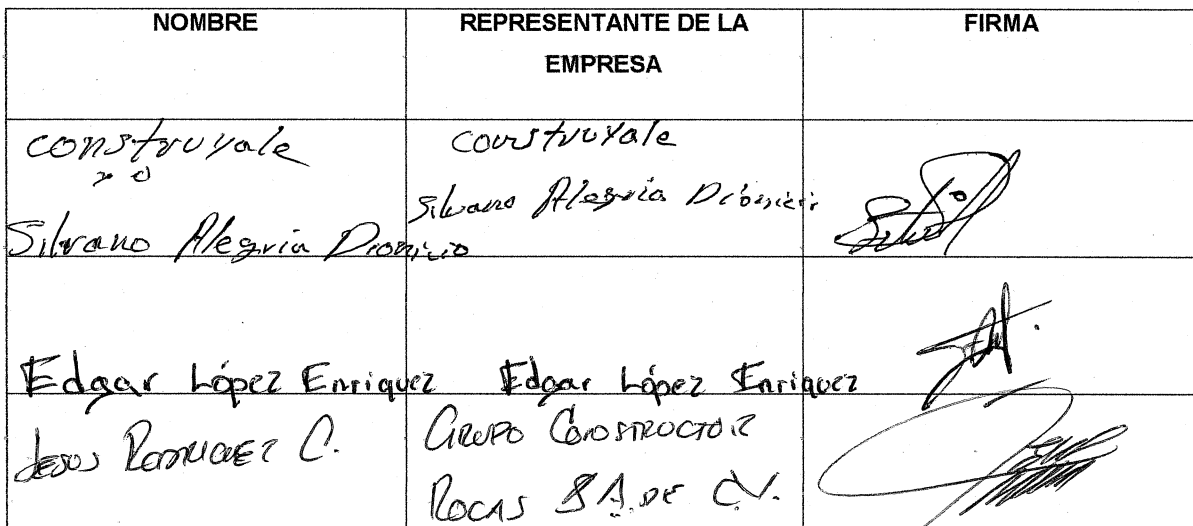 NOMBRE
REPRESENTANTE DE LA
EMPRESA
FIRMA
construyale
Silvano Alegria Dionicio
construyale
Silvano Alegria Dionicio
Edgar López Enriquez
Edgar López Enriquez
Jesus Rodriguez C.
Grupo Constructor
Rocas S.A. de C.V.